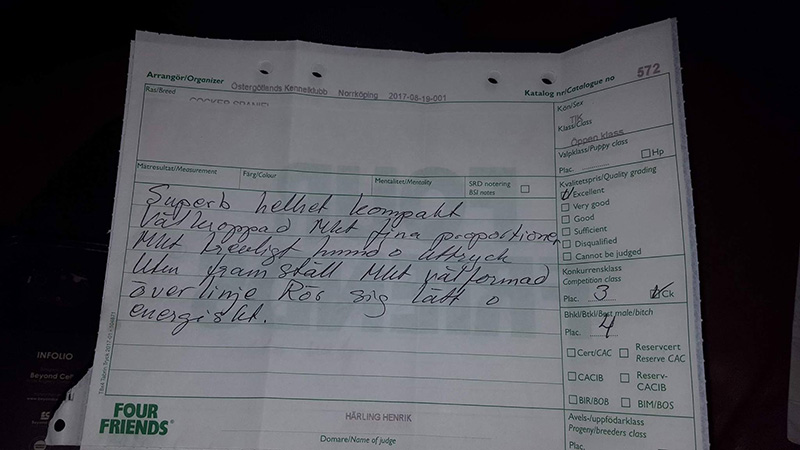 572
Arrangör/Organizer Östergötlands Kennelklubb Norrköping 2017-08-19-001 Katalog nr/Catalogue no
Ras/Breed
COCKER SPANIEL
Kön/Sex
TIK
Klass/Class
Öppen klass
Valpklass/Puppy class
Plac. Hp
Mätresultat/Measurement Färg/Colour Mentalitet/Mentality SRD notering
BSI notes
Kvalitetspris/Quality grading
Excellent
Very good
Good
Sufficient
Disqualified
Cannot be judged
Superb helhet kompakt
Välkroppad Mkt fina proportioner
Mkt trevligt huvud o uttryck
fram ställ Mkt välformad
överlinje Rör sig lätt o
energiskt.
Konkurrensklass
Competition class
Plac. 3 Ck
Bhkl/Btkl/Best male/bitch
Plac. 4
Cert/CAC Reservcert
Reserve CAC
CACIB Reserv-
CACIB
BIR/BOB BIM/BOS
Avels-/uppfödarklass
Progeny/breeders class
Plac.
FOUR
FRIENDS
HÄRLING HENRIK
Domare/Name of judge
INFOLIO